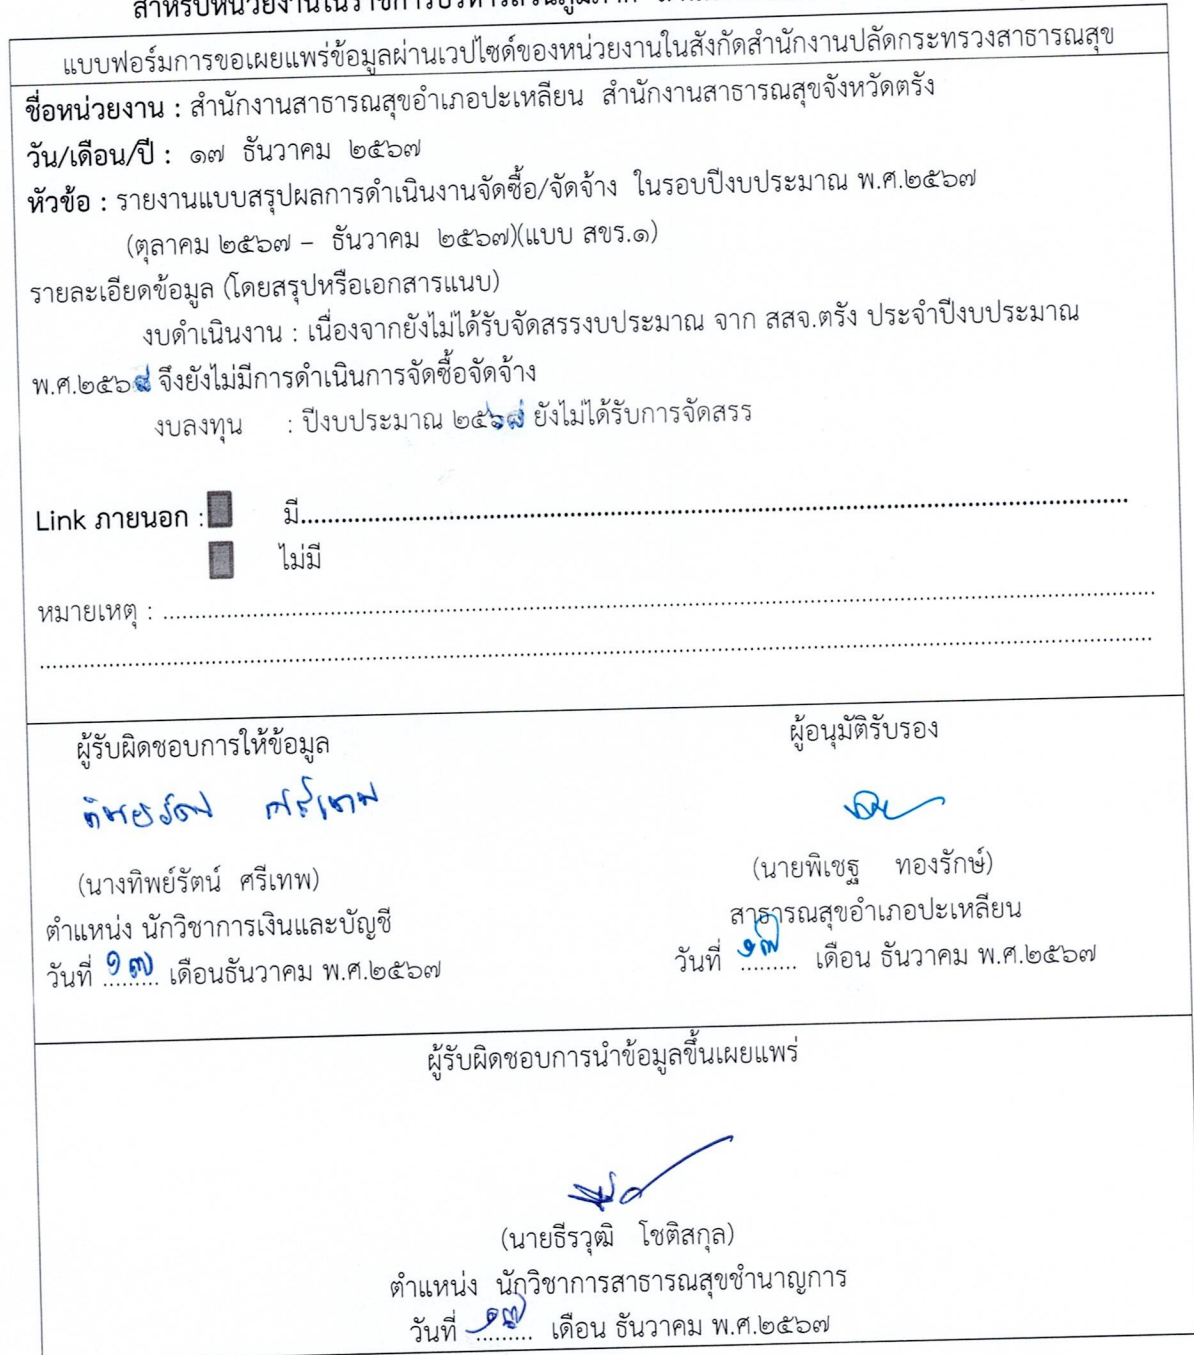 สำหรับหน่วยงานในราชการบริหารส่วนภูมิภาค
แบบฟอร์มการขอเผยแพร่ข้อมูลผ่านเวปไซด์ของหน่วยงานในสังกัดสำนักงานปลัดกระทรวงสาธารณสุข
ชื่อหน่วยงาน : สำนักงานสาธารณสุขอำเภอปะเหลียน สำนักงานสาธารณสุขจังหวัดตรัง
วัน/เดือน/ปี : ๑๗ ธันวาคม ๒๕๖๗
หัวข้อ : รายงานแบบสรุปผลการดำเนินงานจัดซื้อ/จัดจ้าง ในรอบปีงบประมาณ พ.ศ.๒๕๖๗
(ตุลาคม ๒๕๖๗ – ธันวาคม ๒๕๖๗)(แบบ สขร.๑)
รายละเอียดข้อมูล (โดยสรุปหรือเอกสารแนบ)
งบดำเนินงาน : เนื่องจากยังไม่ได้รับจัดสรรงบประมาณ จาก สสจ.ตรัง ประจำปีงบประมาณ
พ.ศ.๒๕๖๘ จึงยังไม่มีการดำเนินการจัดซื้อจัดจ้าง
งบลงทุน : ปีงบประมาณ ๒๕๖๘ ยังไม่ได้รับการจัดสรร
Link ภายนอก : มี..........
ไม่มี
หมายเหตุ : ..........
ผู้รับผิดชอบการให้ข้อมูล
ทิพยรัตน์ ศรีเทพ
(นางทิพย์รัตน์ ศรีเทพ)
ตำแหน่ง นักวิชาการเงินและบัญชี
วันที่ ๑๗ เดือนธันวาคม พ.ศ.๒๕๖๗
ผู้อนุมัติรับรอง
(นายพิเชฐ ทองรักษ์)
สาธารณสุขอำเภอปะเหลียน
วันที่ ๑๗ เดือน ธันวาคม พ.ศ.๒๕๖๗
ผู้รับผิดชอบการนำข้อมูลขึ้นเผยแพร่
(นายธีรวุฒิ โชติสกุล)
ตำแหน่ง นักวิชาการสาธารณสุขชำนาญการ
วันที่ ๑๗ เดือน ธันวาคม พ.ศ.๒๕๖๗